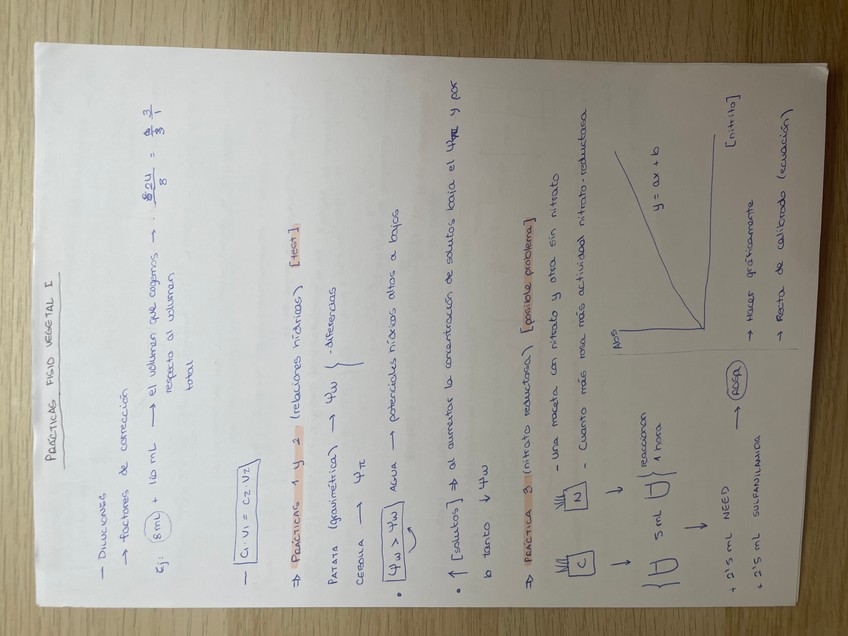 PRÁCTICAS FISIO VEGETAL I
— DILUCIONES
→ factores de corrección
Ej: 8 mL + 16 mL → el volumen que cogamos → 24/8 = 3/1
respecto al volumen
total
— C1 · V1 = C2 · V2
⇒ PRÁCTICAS 1 y 2 (relaciones hídricas) [test]
PATATA (gravimétrica) → Ψw } - diferencias
CEBOLLA → Ψπ
• Ψw > Ψw AGUA → potenciales hídricos altos a bajos
• ↑ [solutos] ⇒ al aumentar la concentración de solutos baja el Ψπ y por
lo tanto ↓ Ψw
⇒ PRÁCTICA 3 (nitrato reductasa) [posible problema]
- una maceta con nitrato y otra sin nitrato
C N - Cuanto más rosa más actividad nitrato-reductasa
↓ ↓
{ 5 mL } reaccionan
1 hora
↓
+ 2'5 mL NEED
+ 2'5 mL SULFANILAMIDA
ABS
y = ax + b
[nitrito]
→ Hacer gráficamente
→ Recta de calibrado (ecuación)